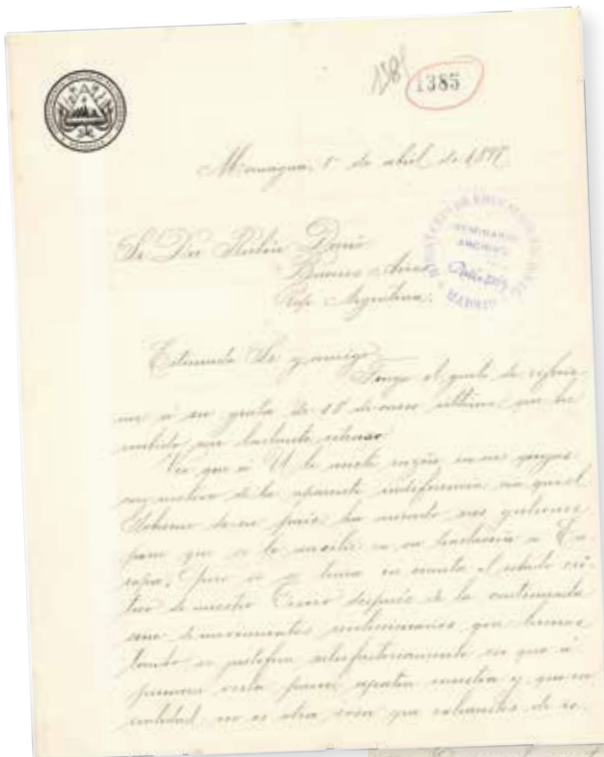 1385
1385
Managua, 1º de abril de 1897
Sr. Don Rubén Darío
Buenos Aires
Rep. Argentina.
SEMINARIO
ARCHIVO
MADRID
Estimado Sr. y amigo
Tengo el gusto de referir-
me á su grata de 18 de enero último,
con bastante retraso.
Veo que á U. le asiste razón en sus quejas
con motivo de la aparente indiferencia con que el
Gobierno de su país ha mirado sus gestiones
para que se le auxilie en su traslación á Eu-
ropa, pero si se toma en cuenta el estado crí-
tico de nuestro Erario después de la continuada
serie de movimientos revolucionarios que hemos
tenido se justifica satisfactoriamente lo que á
primera vista parece apatía nuestra y que en
realidad no es otra cosa que